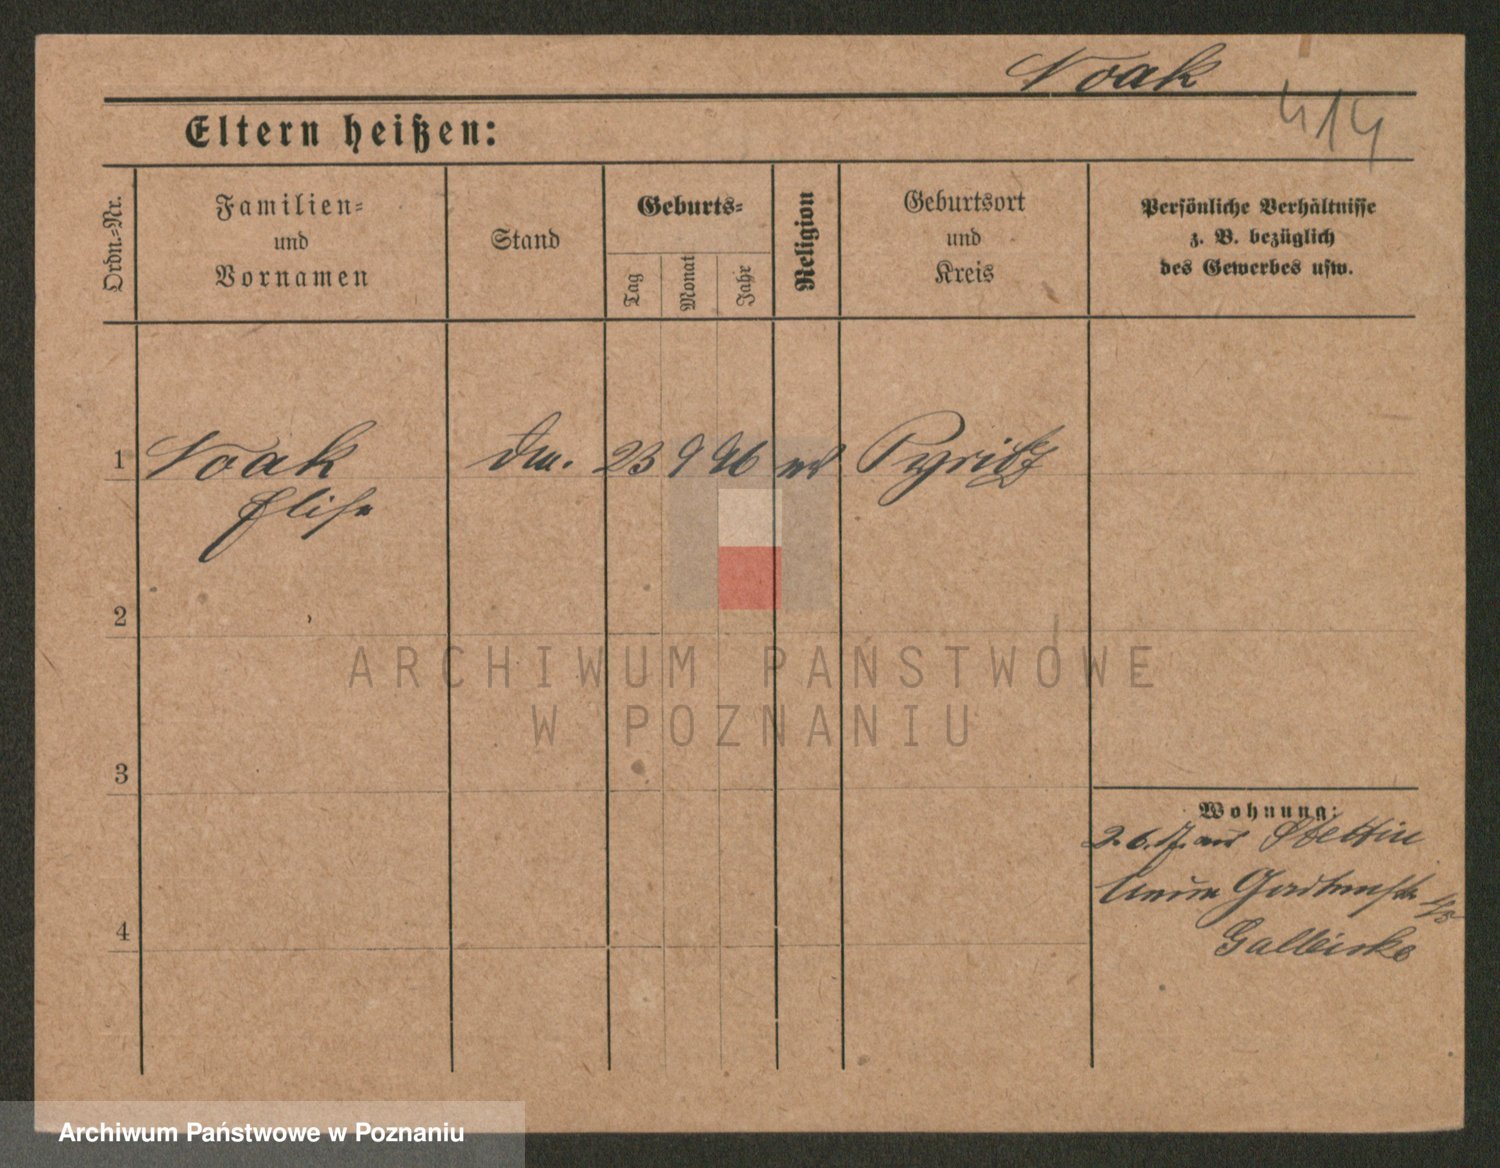 Noak
414
Eltern heißen:
Ordn.-Nr.
Familien-
und
Vornamen
Stand
Geburts-
Tag
Monat
Jahr
Religion
Geburtsort
und
Kreis
Persönliche Verhältnisse
z. B. bezüglich
des Gewerbes usw.
1 Noak 23 9 96 Pyritz
Elise
2
3
4
Wohnung:
2.6.17. aus Stettin
Gartenstr
ARCHIWUM PAŃSTWOWE
W POZNANIU
Archiwum Państwowe w Poznaniu